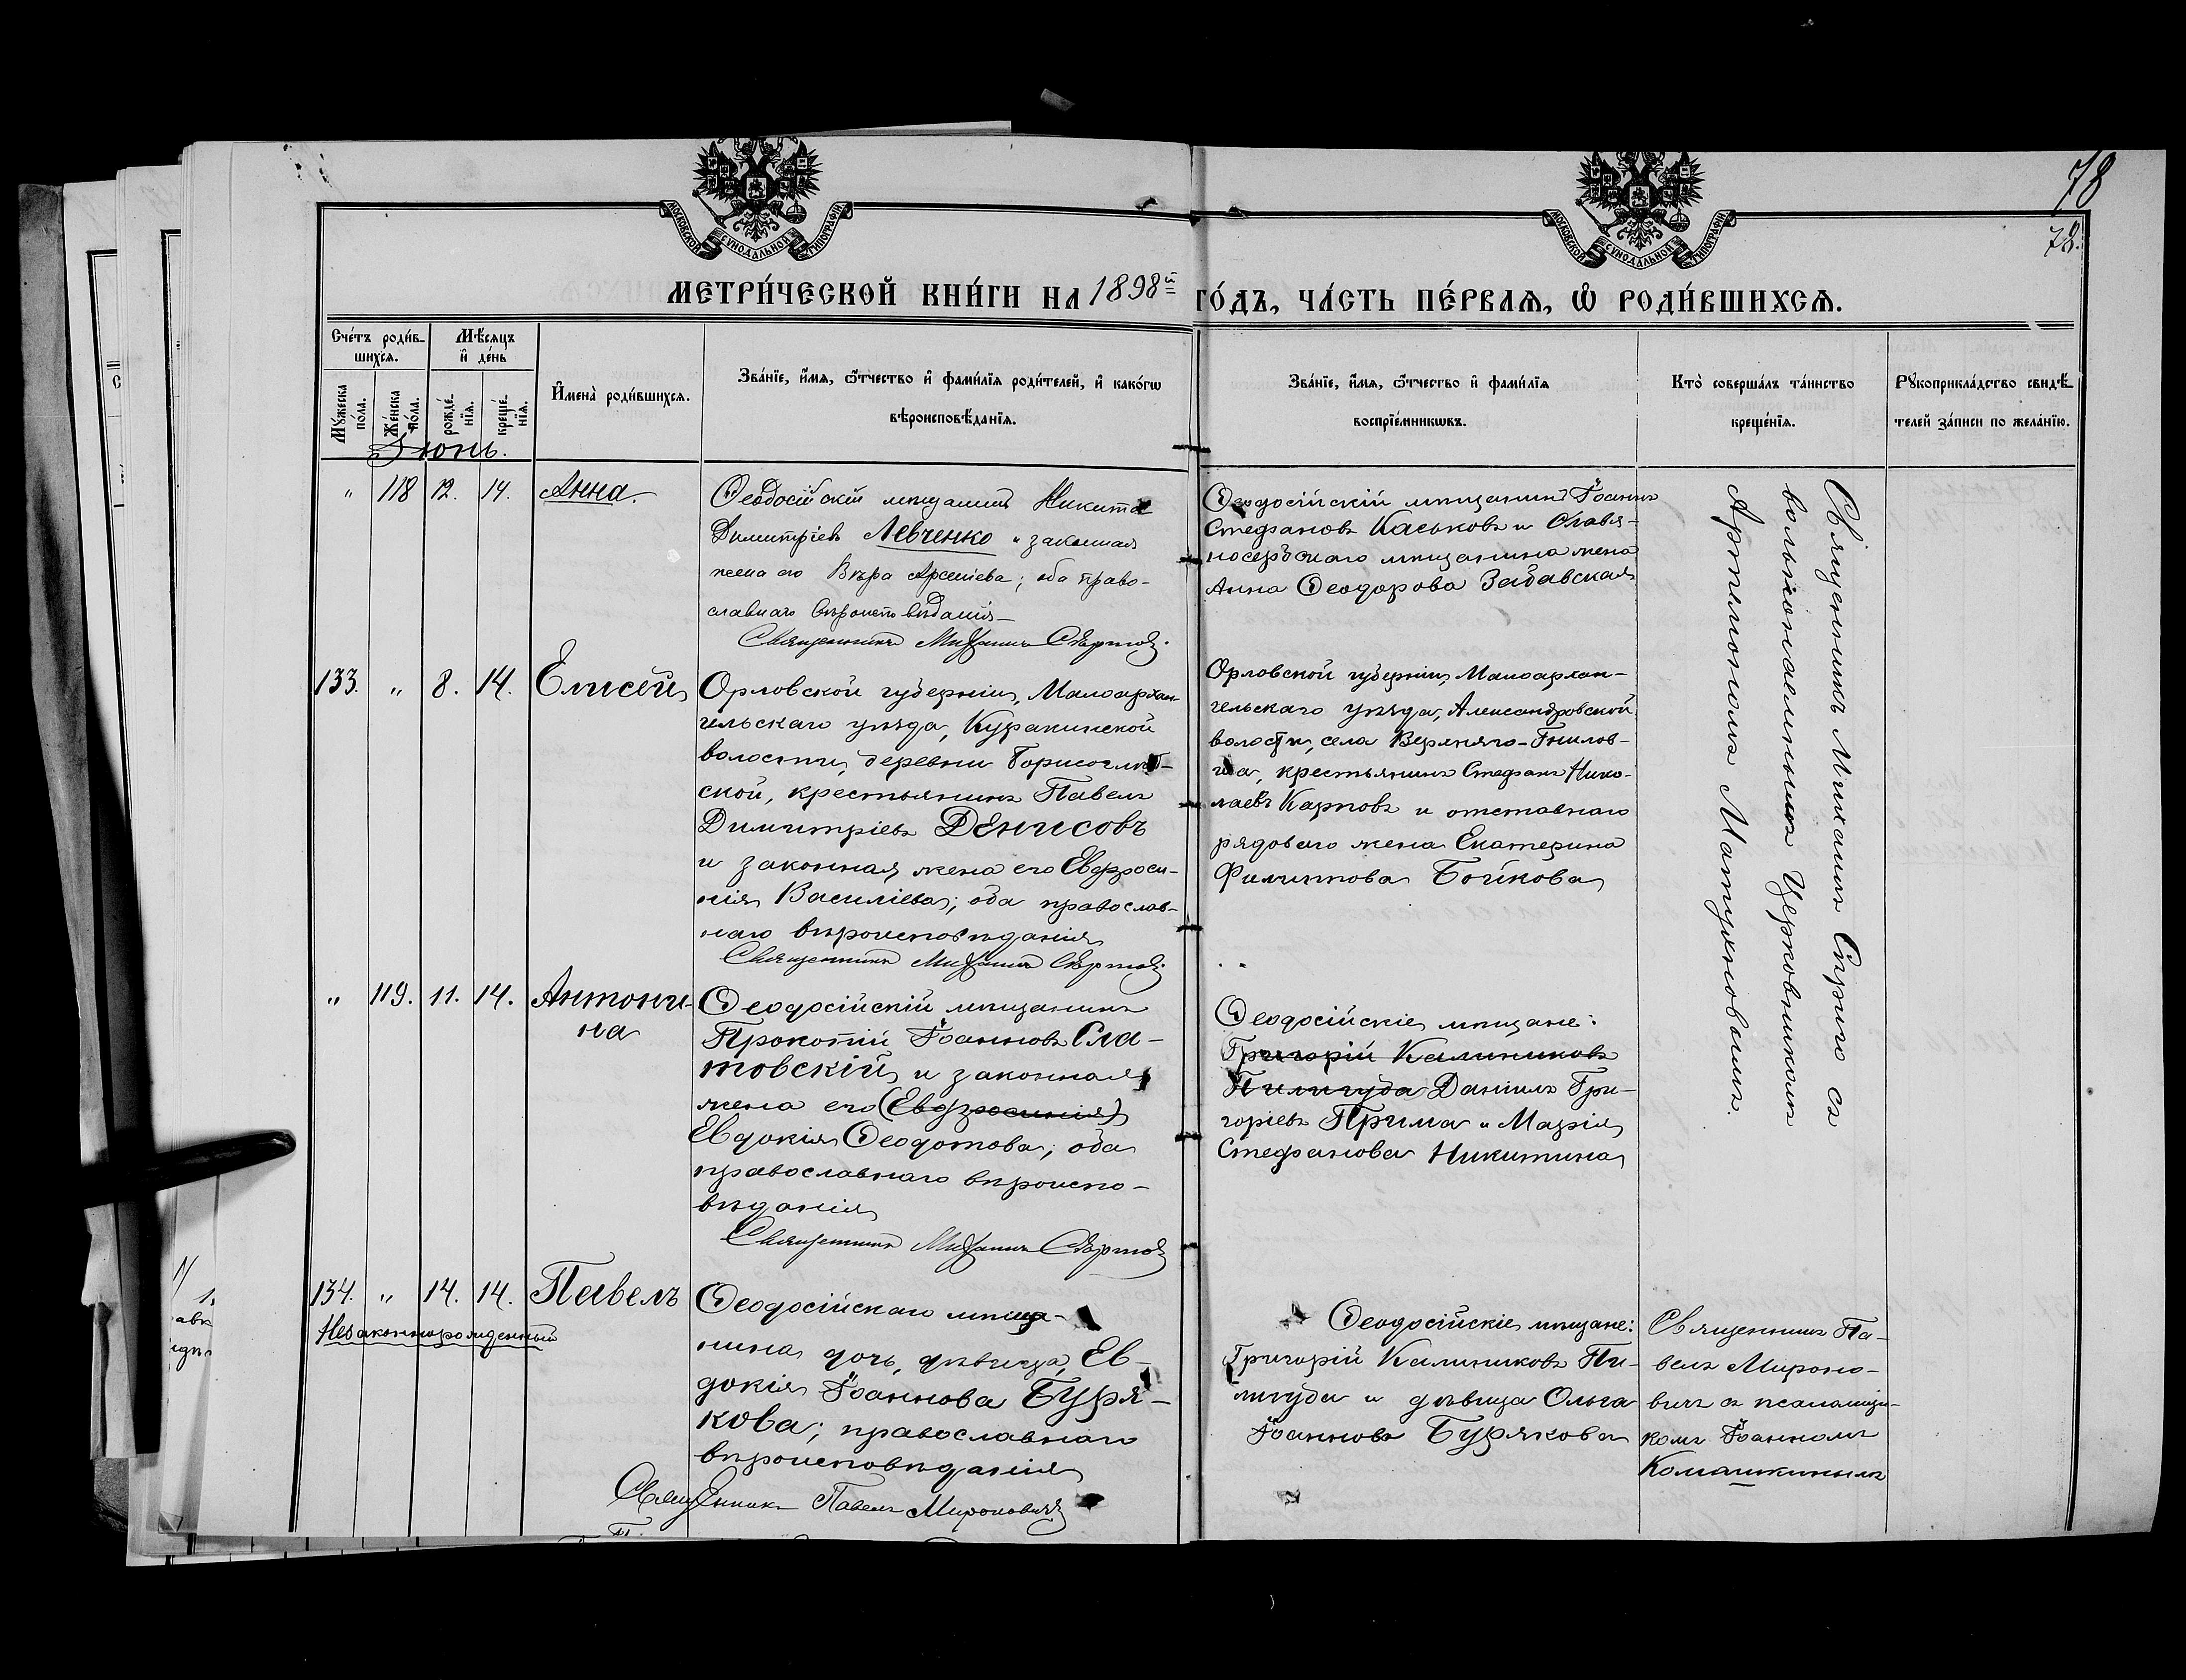 78
78.
МОСКОВСКОЙ СѴНОДАЛЬНОЙ ТИПОГРАФІИ
МОСКОВСКОЙ СѴНОДАЛЬНОЙ ТИПОГРАФІИ
МЕТРИ́ЧЕСКОЙ КНИ́ГИ НА 1898й ГО́ДЪ, ЧА́СТЬ ПЕ́РВАѦ, Ѡ҆ РОДИ́ВШИХСѦ.
Сче́тъ роди́в-
шихсѧ.
Мꙋ́жеска по́ла.
Же́нска по́ла.
Мѣ́сѧцъ и҆ де́нь
рожде́-нїѧ.
креще́-нїѧ.
И҆мена̀ роди́вшихсѧ.
Зва́нїе, и҆́мѧ, ѻ҆́тчество и҆ фами́лїѧ роди́телей, и҆ како́гѡ
вѣроисповѣ́данїѧ.
Зва́нїе, и҆́мѧ, ѻ҆́тчество и҆ фами́лїѧ
воспрїе́мникѡвъ.
Кто̀ соверша́лъ та́инство
креще́нїѧ.
Рꙋкоприкла́дство свидѣ́-
телей за́писи по жела́нїю.
Іюнь.
" 118 12. 14. Анна.
Ѳеодосійскій мѣщанинъ Никита
Димитріевъ Левченко и законная
жена его Вѣра Арсеніева; оба право-
славнаго вѣроисповѣданія
Священникъ Михаилъ
Ѳеодосійскій мѣщанинъ Іоаннъ
Стефановъ Каськовъ и Славя-
носербскаго мѣщанина жена
Анна Ѳеодорова Забавская
Священникъ Михаилъ с
вольнонаемнымъ Церковникомъ
133. " 8. 14. Елисей
Орловской губерніи, Малоархан-
гельскаго уѣзда, Куракинской
волости, деревни Борисоглѣб-
ской, крестьянинъ Павелъ
Димитріевъ Денисовъ
и законная жена его Евфроси-
нія Василіева; оба православ-
наго вѣроисповѣданія
Священникъ Михаилъ
Орловской губерніи, Малоархан-
гельскаго уѣзда, Александровской
волости, села Верхняго-Гнилов-
ца, крестьянинъ Стефанъ Нико-
лаевъ Карповъ и отставнаго
рядоваго жена Екатерина
Филиппова Бойкова
" 119. 11. 14. Антони-
на
Ѳеодосійскій мѣщанинъ
Прокопій Іоанновъ Сла-
товскій и законная
жена его (Евфросинія)
Евдокія Ѳеодотова; оба
православнаго вѣроиспо-
вѣданія
Священникъ Михаилъ
Ѳеодосійскіе мѣщане:
Григорій Калиниковъ
Пилигуда Даніилъ Гри-
горіевъ Прима и Марія
Стефанова Никитина
134. " 14. 14. Павелъ
Незаконнорожденный
Ѳеодосійскаго мѣща-
нина дочь, дѣвица, Ев-
докія Іоаннова Буря-
кова; православнаго
вѣроисповѣданія
Священникъ Павелъ Мироновичъ
Ѳеодосійскіе мѣщане:
Григорій Калиниковъ Пи-
лигуда и дѣвица Ольга
Іоаннова Бурякова
Священникъ Па-
велъ Мироно-
вичъ съ псаломщи-
комъ Іоанномъ
Комашкинымъ